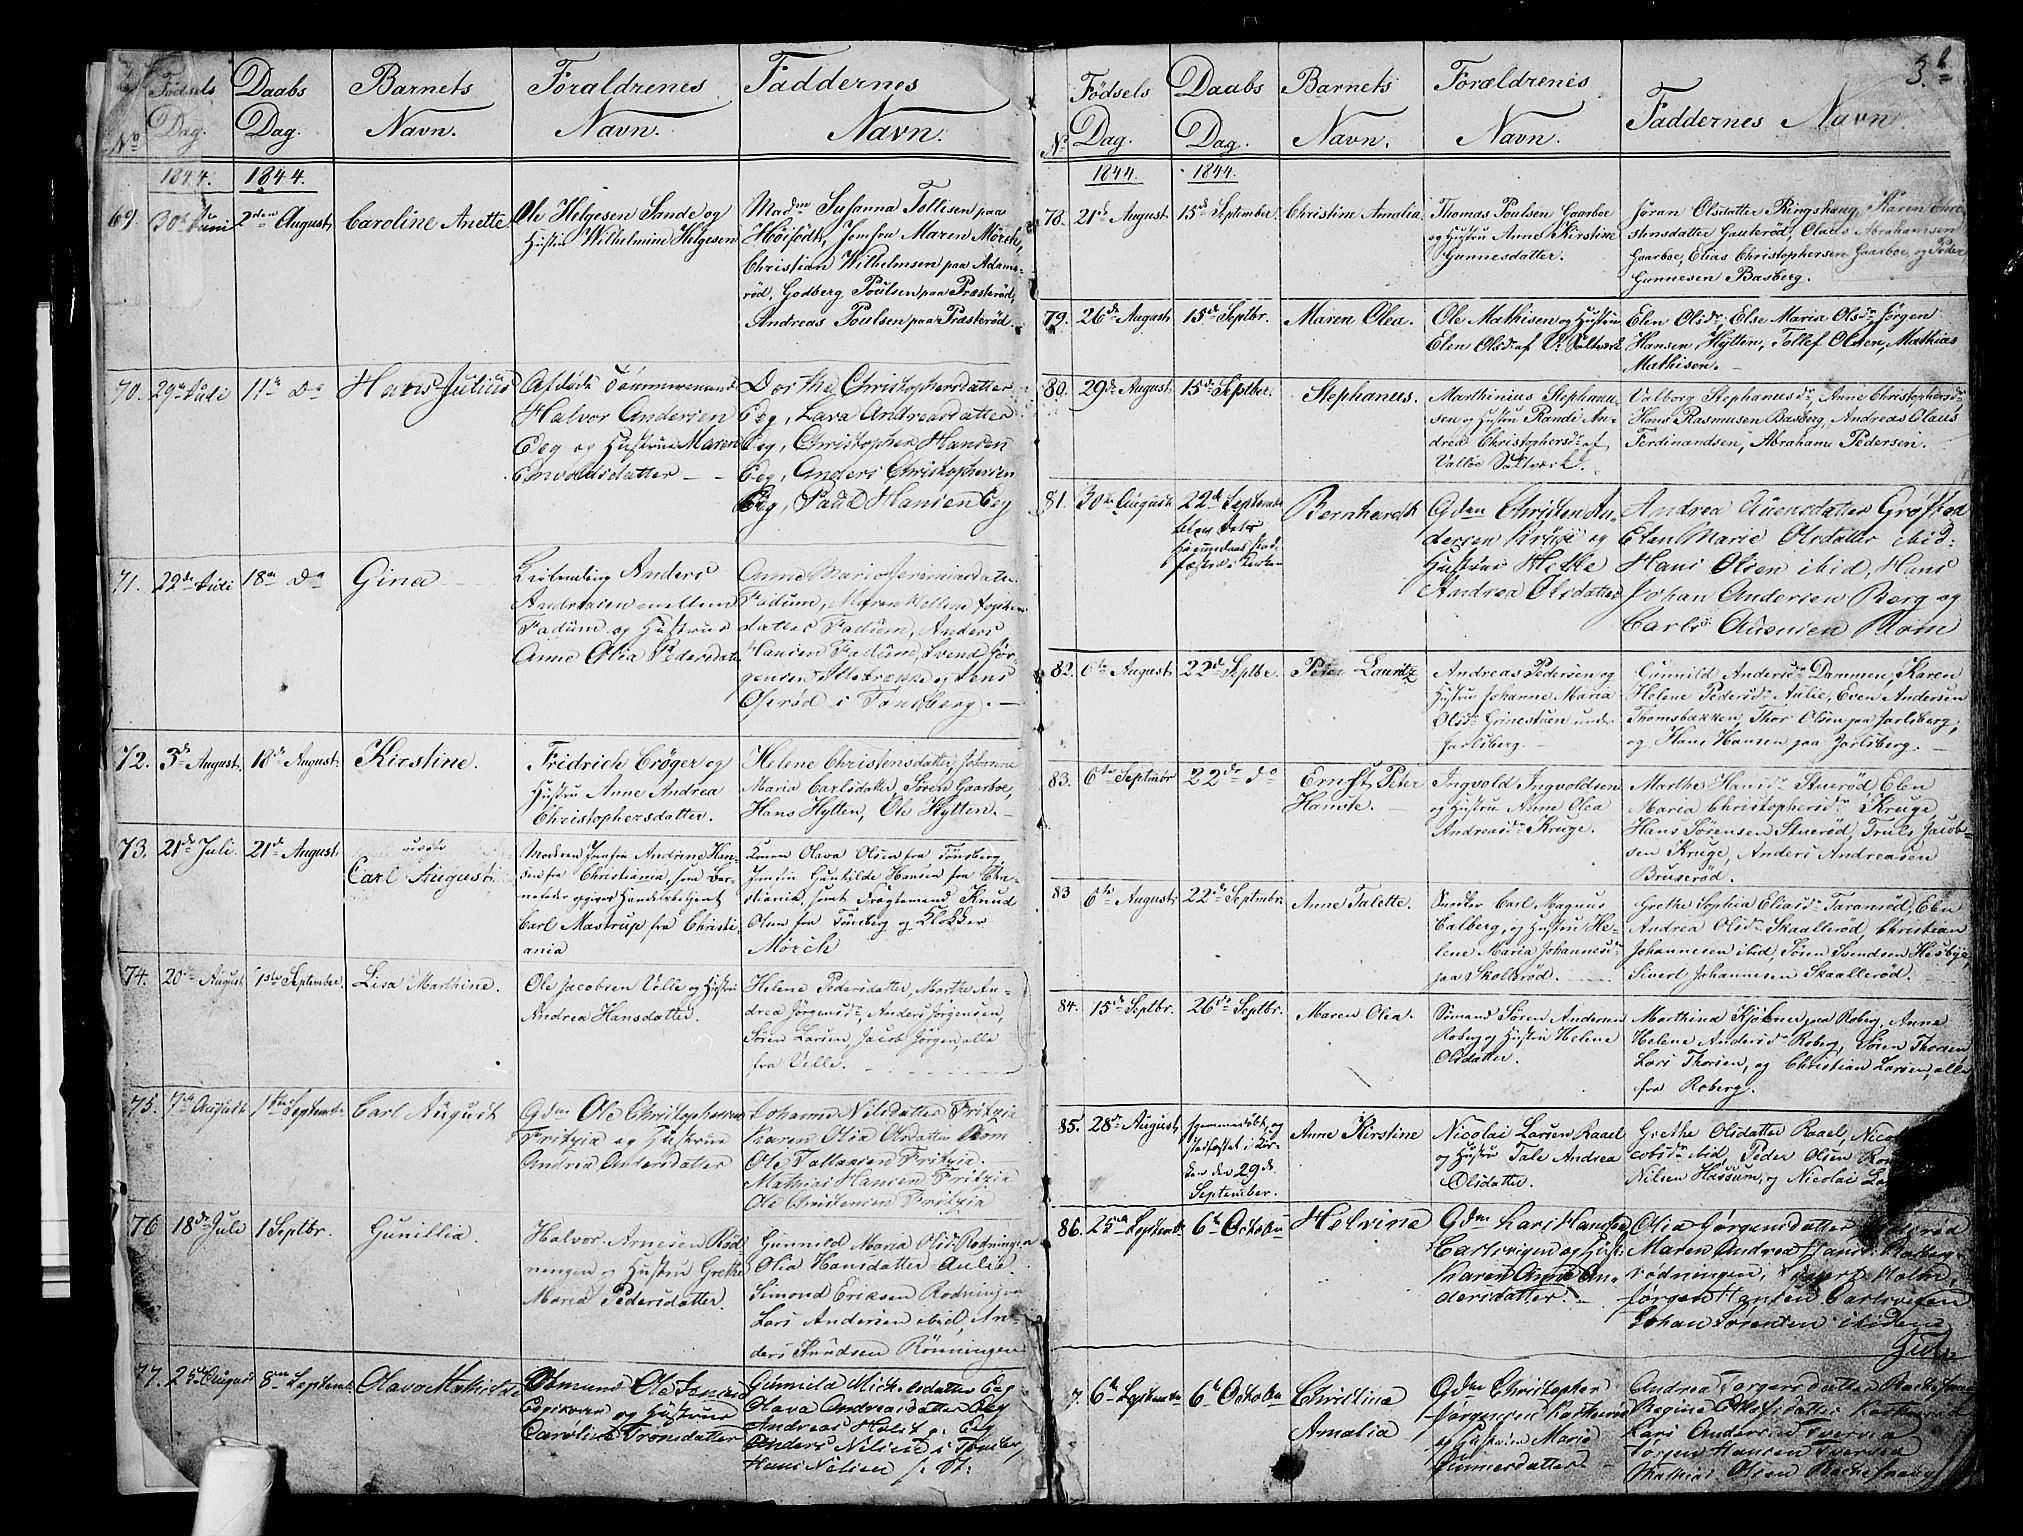 Fødsels Daabs Barnets Forældrenes Faddernes
No Dag. Dag. Navn. Navn. Navn.
1844. 1844.
69. 30te Juni 2den August Caroline Anette Ole Helgesen Sande og
Hustru Wilhelmine Helgesen
Madm Susanna Tollisen paa
Høifødt, Jomfru Maren Mörch,
Christian Wilhelmsen paa Adams-
rød, Godberg Poulsen paa Præsterød,
Andreas Poulsen paa Præsterød.
70. 29de Juli 11te Do Hans Julius Afdøde Tömmermand
Halvor Andersen
Eeg og Hustrue Maren
Envoldsdatter —
Dorthe Christophersdatter
Eeg, Lava Andreasdatter
Eeg, Christopher Hansen
Eeg, Anders Christophersen
Eeg, Paul Hansen Eeg
71. 22de Juli 18de Do Gina Anders
Andersen mellem
Fadum og Hustrue
Anne Olia Pedersdatter
Anne Maria Jeremiasdatter
Fadum, Maren
datter Fadum, Anders
Hansen Fadum, Svend Jör-
gensen og Jens
Oserød i Tønsberg. —
72. 3de August 18de August. Kirstine. Fridrich Cröger og
Hustru Anne Andrea
Christophersdatter.
Helene Christensdatter, Johanne
Maria Carlsdatter, Sören Gaarboe,
Hans Hytten, Ole Hytten. —
73. 21de Juli. 21de August. uægte
Carl August Moderen Jomfru Andrine Han-
sen fra Christiania, som Bar-
nefader opgives Handelsbetjent
Carl Mastrup fra Christi-
ania
Konen Olava Olsen fra Tönsberg,
Jomfru Gunhilde Hansen fra Chri-
stiania, samt Knud
Olsen fra Tönsberg og Klokker
Mörch
74. 20de August 1ste September. Lisa Marthine. Ole Jacobsen Velle og Hustru
Andrea Hansdatter.
Helene Pedersdatter, Marthe An-
drea Jörgensdr, Anders Jörgensen,
Sören Larsen, Jacob Jörgen, alle
fra Velle.
75. 7de August 1ste Septembr Carl August Gdm Ole Christophersen
Fritzia og Hustrue
Andrea Andersdatter
Johanne Nilsdatter Fritzia
Karen Olia Olsdatter Rom
Ole Tallaksen Fritzia.
Mathias Hansen Fritzia
Ole Christensen Fritzia
76 18de Juli 1 Septbr. Gunillia. Halvor Arnesen Röd-
ningen og Hustru Grethe
Maria Pedersdatter.
Gunnild Maria Olsdr Rodningen
Olia Hansdatter Aulie.
Simond Eriksen Rodningen
Lars Andersen ibid, An-
ders Knudsen Rönningen
77. 25de August 8de Septembr Olava Mathilde Osmund Olesen
Eegeskoven og Hustrue
Caroline Tronsdatter
Gunnild Mickelsdatter Eeg
Olava Andreasdatter Eeg
Andreas Eeg
Anders Nilsen i Tönsberg
Hans Nilsen f: St:
3.b
Fødsels Daabs Barnets Forældrenes
No Dag. Dag. Navn. Navn. Faddernes Navn.
1844. 1844.
78. 21de August 15de September. Christine Amalia. Thomas Poulsen Gaarboe
og Hustru Anne Kirstine
Gunnesdatter.
Jöran Olsdatter Ringshaug, Karen Chri-
stensdatter Gauterød, Olaus Abrahamsen
Gaarboe, Elias Christophersen Gaarboe, og Peder
Gunnesen Basberg.
79. 26de August 15de Septbr. Maren Olea. Ole Mathisen og Hustru
Elen Olsdr af V. Saltværk
Elen Olsdr, Else Maria Olsdr Jörgen
Hansen, Hytten, Tollef Olsen, Mathias
Mathisen. —
80. 29de August 15de Septbr. Stephanus. Marthinius Stephanu-
sen og Hustru Randi An-
drea Christophersdr af
Valløe Saltværk.
Valborg Stephanusdr, Anne Christophersdr,
Hans Rasmussen Basberg, Andreas Olaus
Ferdinandsen, Abraham Pedersen.
81. 30te August 22de September
blev dets
hjemmedaab stad-
fæstet i Kirken
Bernhardt Gdm Christen An-
dersen Kruge og
Hustrue Helle
Andrea Olsdatter
Andrea Auensdatter Gröfsted
Elen Marie Olsdatter ibid:
Hans Olsen ibid, Hans
Johan Andersen Berg og
Carl Auensen Rom
82. 6te August 22de Septbr. Peter Lauritz Andreas Pedersen og
Hustru Johanne Maria
Olsdr Grinestuen under
Jarlsberg. —
Gunnild Andersdr Dammen, Karen
Helene Pedersdr Aulie, Even Andersen
Thomsbakken, Thor Olsen paa Jarlsberg,
og Hans Hansen paa Jarlsberg. —
83. 6te Septmbr 22de do Ernst Peter
Hanste. Ingvold Ingvoldsen
og Hustru Anne Olea
Andreasdr Kruge.
Marthe Hansdr Stuerød, Elen
Maria Christophersdr Kruge
Hans Sörensen Stuerød, Truls Jacob-
sen Kruge, Anders Andreasen
Bruserød.
83 6te August 22de Septembr. Anne Talette. Smeden Carl Magnus
Calberg, og Hustru He-
lene Maria Johannesdr
paa Skolerød.
Grethe Sophia Eliasdr Taranrød, Elen
Andrea Olsdr Skaallerød, Christian
Johannesen ibid, Sören Svendsen Hesbye,
Sivert Johannesen Skaallerød.
84. 15de Septbr. 26de Septbr. Maren Olea. Sömand Sören Andersen
Roberg og Hustru Helene
Olsdatter.
Marthina Kjölner paa Roberg, Anne
Helene Andersdr Roberg, Sören Thorsen
Lars Thorsen, og Christian Larsen, alle
fra Roberg.
85. 28de August hjemmedøbt og
stadfæstet i Kir-
ken den 29de
September.
Anne Kirstine Nicolai Larsen Raael
og Hustru Tale Andrea
Olsdatter.
Grethe Olsdatter Raael, Nico
cobsdr ibid, Peder Olsen
Nilsen Hassum, og Nicolai L
86. 25de Septembr 6te October Helvine Gdm Lars Hansen
Carlsvigen og Hustr:
Karen Anne An-
dersdatter. —
Olia Jörgensdatter
Maren Andrea Hansdr Roberg
rödningen, Holm,
Jörgen Hansen Carlsvigen
Johan Sörensen ibidem
7. 6te Septembr 6te October Christina
Amalia Gdm Christopher
Jörgensen
og Hustrue Marie
Gunnersdatter —
Andrea Torgersdatter
Regine Olsdatter
Lars Andersen Tverved
Jörgen Hansen Tverved
Mathias Olsen